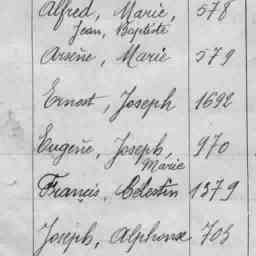 Alfred, Marie, 578
Jean, Baptiste
Arsène, Marie 579
Ernest, Joseph 1692
Eugène, Joseph, 970
Marie
Françis, Célestin 1379
Joseph, Alphonse 703